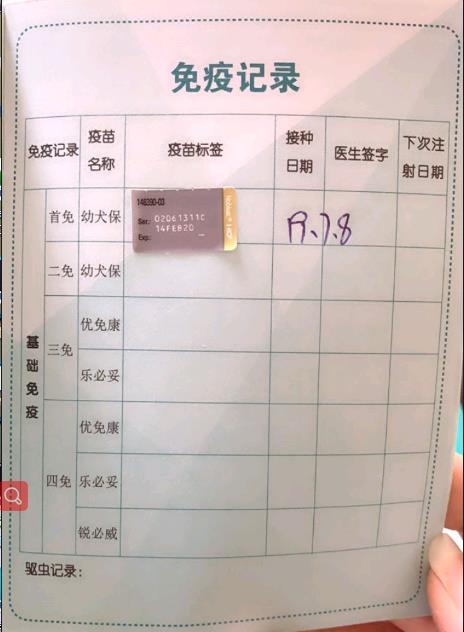 免疫记录
免疫记录 疫苗名称 疫苗标签 接种日期 医生签字 下次注射日期
基础免疫
首免 幼犬保
148390-03
Ser.: 02061311C
14FE820
Exp.:
19.7.8
二免 幼犬保
三免 优免康
乐必妥
四免 优免康
乐必妥
锐必威
驱虫记录：